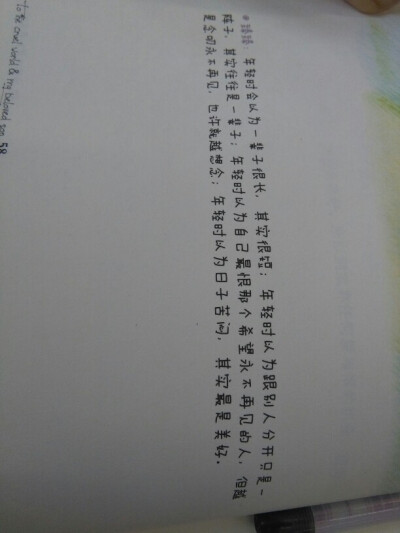 嬉嬉：年轻时会以为一辈子很长，其实很短；年轻时以为跟别人分开只是一
阵子，其实往往是一辈子；年轻时以为自己最恨那个希望永不再见的人，但越
是念叨永不再见，也许就越想念；年轻时以为日子苦闷，其实最是美好。
to the cruel world & my beloved son 58